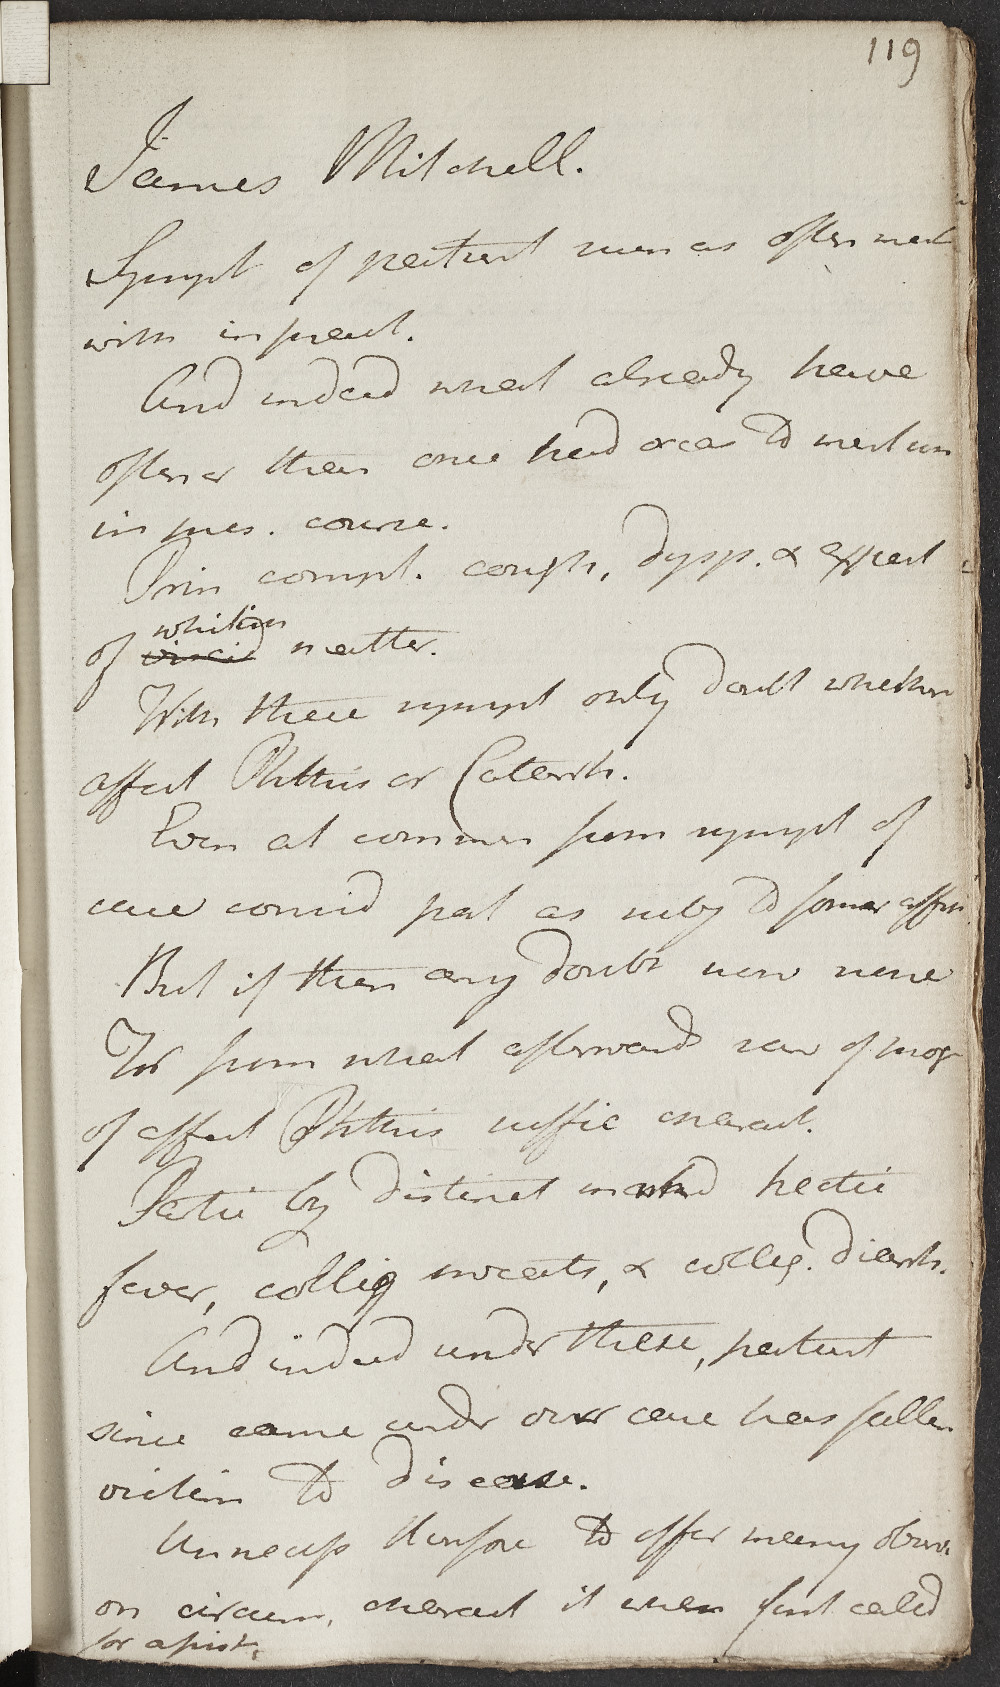 119
James Mitchell.
Sympt of patient such as often meet
with in pract.
And indeed what already have
oftener than once had occas to ment
in pres. course.
Prin compl. cough, dysp. & expect
whitish
of viscid matter.
With these sympt only doubt whether
affect Phthisis or Catarrh.
Even at commen from sympt of
case consid pat as subj to former affect.
But if then any doubt now none
For from what afterwards saw of progr
of affect Phthisis suffic charact.
Partic by distinct marked hectic
fever, colliq sweats, & colliq. diarrh.
And indeed under these, patient
since came under our care has fallen
victim to disease.
Unnecess therefore to offer many observ
on circum. charact it when first called
for assist.